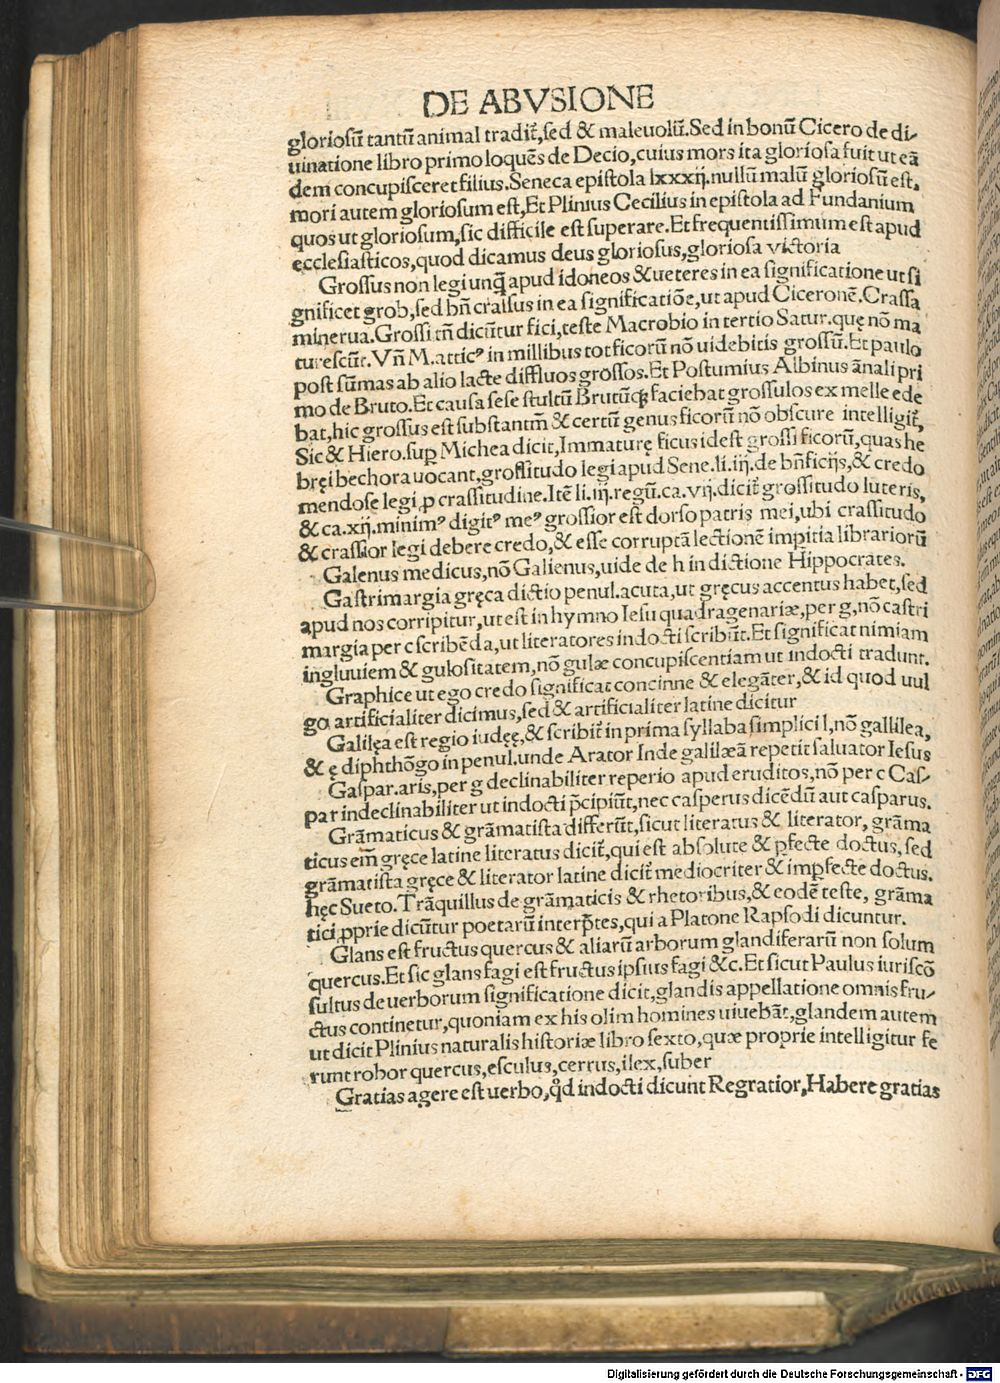 DE ABVSIONE
gloriosũ tantũ animal tradit̃, sed & maleuolũ. Sed in bonũ Cicero de di-
uinatione libro primo loquẽs de Decio, cuius mors ita gloriosa fuit ut eã
dem concupisceret filius. Seneca epistola lxxxij. nullũ malũ gloriosũ est,
mori autem gloriosum est, Et Plinius Cecilius in epistola ad Fundanium
quos ut gloriosum, sic difficile est superare. Et frequentissimum est apud
ecclesiasticos, quod dicamus deus gloriosus, gloriosa victoria
Grossus non legi unq̃ apud idoneos & ueteres in ea significatione ut si
gnificet grob, sed bñ crassus in ea significatiõe, ut apud Ciceronẽ. Crassa
minerua. Grossi tñ dicũtur fici, teste Macrobio in tertio Satur. quę nõ ma
turescũt. Vñ M. attic⁹ in millibus tot ficorũ nõ uidebitis grossũ. Et paulo
post sũmas ab alio lacte diffluos grossos. Et Postumius Albinus ãnali pri
mo de Bruto. Et causa sese stultũ Brutũq; faciebat grossulos ex melle ede
bat, hic grossus est substantm̃ & certũ genus ficorũ nõ obscure intelligit̃,
Sic & Hiero. sup Michea dicit, Immaturę ficus idest grossi ficorũ, quas he
bręi bechora uocant, grossitudo legi apud Sene. li. iij. de bñficijs, & credo
mendose legi ꝓ crassitudine. Itẽ li. iij. regũ. ca. vij. dicit̃ grossitudo luteris,
& ca. xij. minim⁹ digit⁹ me⁹ grossior est dorso patris mei, ubi crassitudo
& crassior legi debere credo, & esse corruptã lectionẽ impitia librariorũ
Galenus medicus, nõ Galienus, uide de h in dictione Hippocrates.
Gastrimargia gręca dictio penul. acuta, ut gręcus accentus habet, sed
apud nos corripitur, ut est in hymno Iesu quadragenariæ, per g, nõ castri
margia per c scribẽda, ut literatores indocti scribũt. Et significat nimiam
ingluuiem & gulositatem, nõ gulæ concupiscentiam ut indocti tradunt.
Graphice ut ego credo significat concinne & elegãter, & id quod uul
go artificialiter dicimus, sed & artificialiter latine dicitur
Galilęa est regio iudęę, & scribit̃ in prima syllaba simplici l, nõ gallilea,
& ę diphthõgo in penul. unde Arator Inde galilæã repetit saluator Iesus
Gaspar. aris, per g declinabiliter reperio apud eruditos, nõ per c Cas-
par indeclinabiliter ut indocti p̃cipiũt, nec casperus dicẽdũ aut casparus.
Grãmaticus & grãmatista differũt, sicut literatus & literator, grãma
ticus em̃ gręce latine literatus dicit̃, qui est absolute & ꝑfecte doctus, sed
grãmatista gręce & literator latine dicit̃ mediocriter & imꝑfecte doctus.
hęc Sueto. Trãquillus de grãmaticis & rhetoribus, & eodẽ teste, grãma
tici ꝓprie dicũtur poetarũ interp̃tes, qui a Platone Rapsodi dicuntur.
Glans est fructus quercus & aliarũ arborum glandiferarũ non solum
quercus. Et sic glans fagi est fructus ipsius fagi &c. Et sicut Paulus iuriscõ
sultus de uerborum significatione dicit, glandis appellatione omnis fru-
ctus continetur, quoniam ex his olim homines uiuebãt, glandem autem
ut dicit Plinius naturalis historiæ libro sexto, quæ proprie intelligitur fe
runt robor quercus, esculus, cerrus, ilex, suber
Gratias agere est uerbo, q̃d indocti dicunt Regratior, Habere gratias
Digitalisierung gefördert durch die Deutsche Forschungsgemeinschaft - DFG